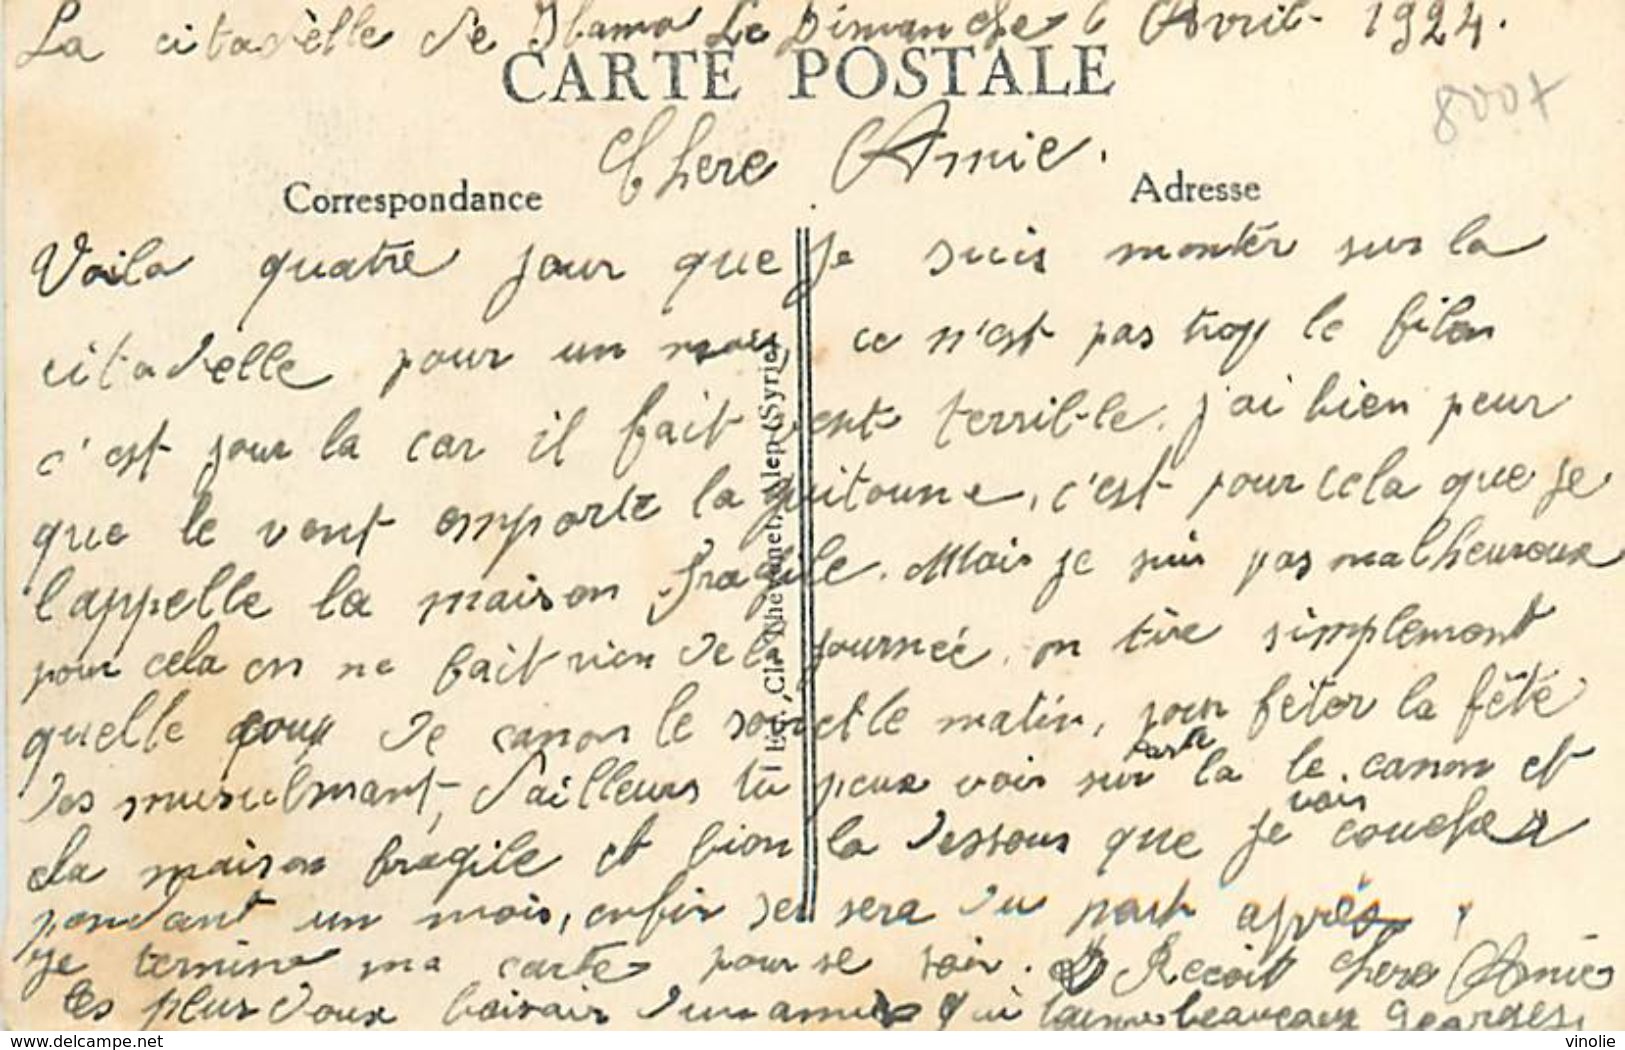 La citadelle de Hama Le Dimanche 6 Avril 1924.
CARTE POSTALE
800x
Chere Amie.
Correspondance
Adresse
Voila quatre jour que je suis monter sur la
citadelle pour un mois, ce n'est pas trop le filon
c'est jour la car il fait vent terrible. j'ai bien peur
que le vent emporte la guitoune, c'est pour cela que je
l'appelle la maison fragile. Mais je suis pas malheureux
pour cela on ne fait rien de la journée, on tire simplement
quelle coup de canon le soir et le matin, pour feter la fêté
des musulmant, d'ailleurs tu peux voir sur la carte le canon et
la maison fragile et bien la dessous que je vais coucher
pendant un mois, enfin se sera du pareil après
Je termine ma carte pour se soir. Recoit chere Amie
les plus doux baisair d'un amie qui t'aime beaucoup Georges.
Edit. Cl. Thevenet, Alep (Syrie)
delcampe.net
vinolie